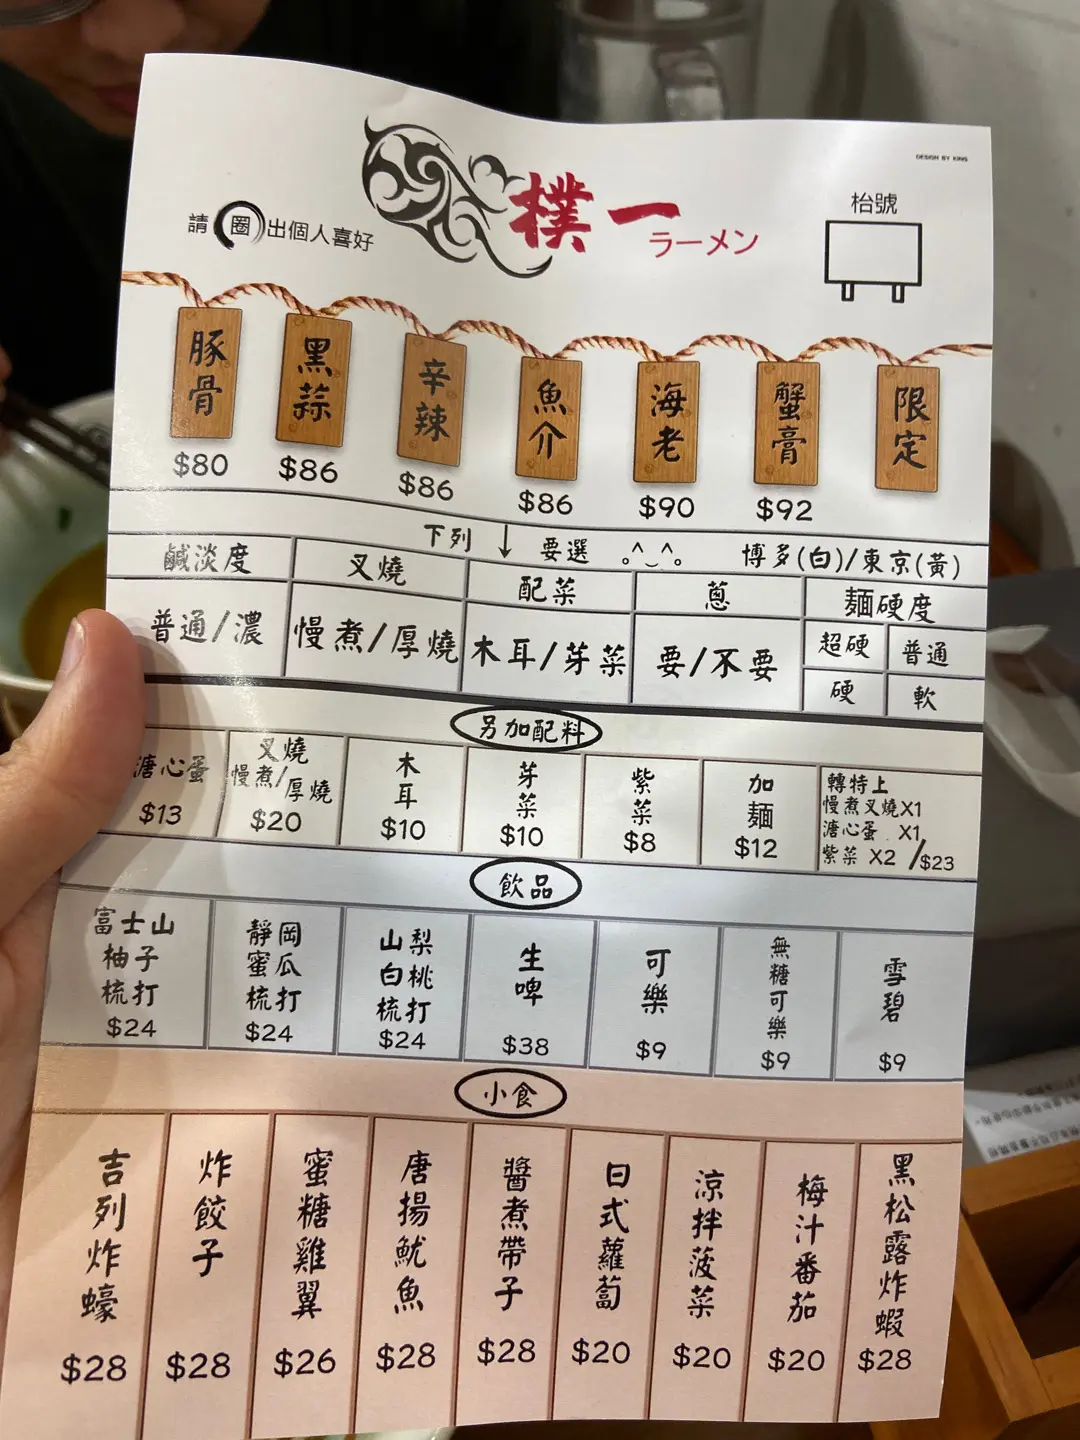 DESIGN BY KING
請圈出個人喜好
樸一
ラーメン
枱號
豚骨
$80
黑蒜
$86
辛辣
$86
魚介
$86
海老
$90
蟹膏
$92
限定
下列 ↓ 要選 。^‿^。 博多(白)/東京(黃)
鹹淡度
普通/濃
叉燒
慢煮/厚燒
配菜
木耳/芽菜
蔥
要/不要
麵硬度
超硬
普通
硬
軟
另加配料
溏心蛋
$13
叉燒
慢煮/厚燒
$20
木耳
$10
芽菜
$10
紫菜
$8
加麵
$12
轉特上
慢煮叉燒X1
溏心蛋 X1
紫菜 X2 /$23
飲品
富士山
柚子
梳打
$24
靜岡
蜜瓜
梳打
$24
山梨
白桃
梳打
$24
生啤
$38
可樂
$9
無糖可樂
$9
雪碧
$9
小食
吉列炸蠔
$28
炸餃子
$28
蜜糖雞翼
$26
唐揚魷魚
$28
醬煮帶子
$28
日式蘿蔔
$20
涼拌菠菜
$20
梅汁番茄
$20
黑松露炸蝦
$28